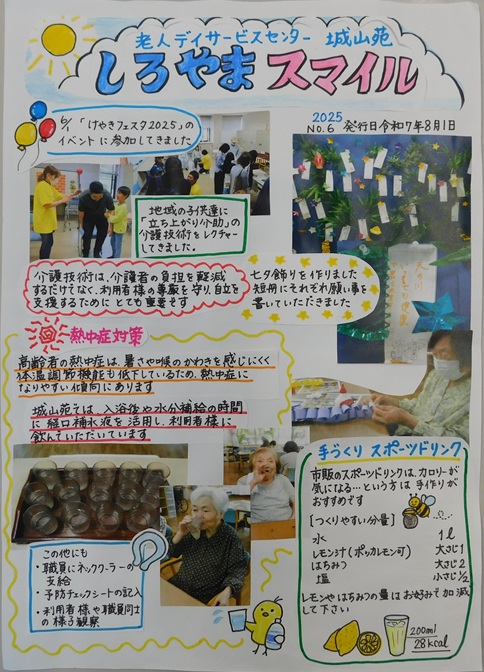 老人デイサービスセンター 城山苑
しろやま スマイル
2025
No.6 発行日令和7年8月1日
6/1 「けやきフェスタ2025」の
イベントに参加してきました
地域の子供達に
「立ち上がり介助」の
介護技術をレクチャー
してきました。
介護技術は、介護者の負担を軽減
するだけでなく、利用者様の尊厳を守り、自立を
支援するために とても重要です
七夕飾りを作りました
短冊にそれぞれ願い事を
書いていただきました
熱中症対策
高齢者の熱中症は、暑さや喉のかわきを感じにくく
体温調節機能も低下しているため、熱中症に
なりやすい傾向にあります
城山苑では、入浴後や水分補給の時間
に経口補水液を活用し、利用者様に
飲んでいただいています
この他にも
・職員にネッククーラーの
支給
・予防チェックシートの記入
・利用者様や職員同士
の様子観察
手づくり スポーツドリンク
市販のスポーツドリンクは、カロリーが
気になる…という方は 手作りが
おすすめです
[つくりやすい分量]
水 1ℓ
レモン汁(ポッカレモン可) 大さじ1
はちみつ 大さじ2
塩 小さじ1/2
レモンやはちみつの量はお好みで加減
して下さい
200ml
28kcal